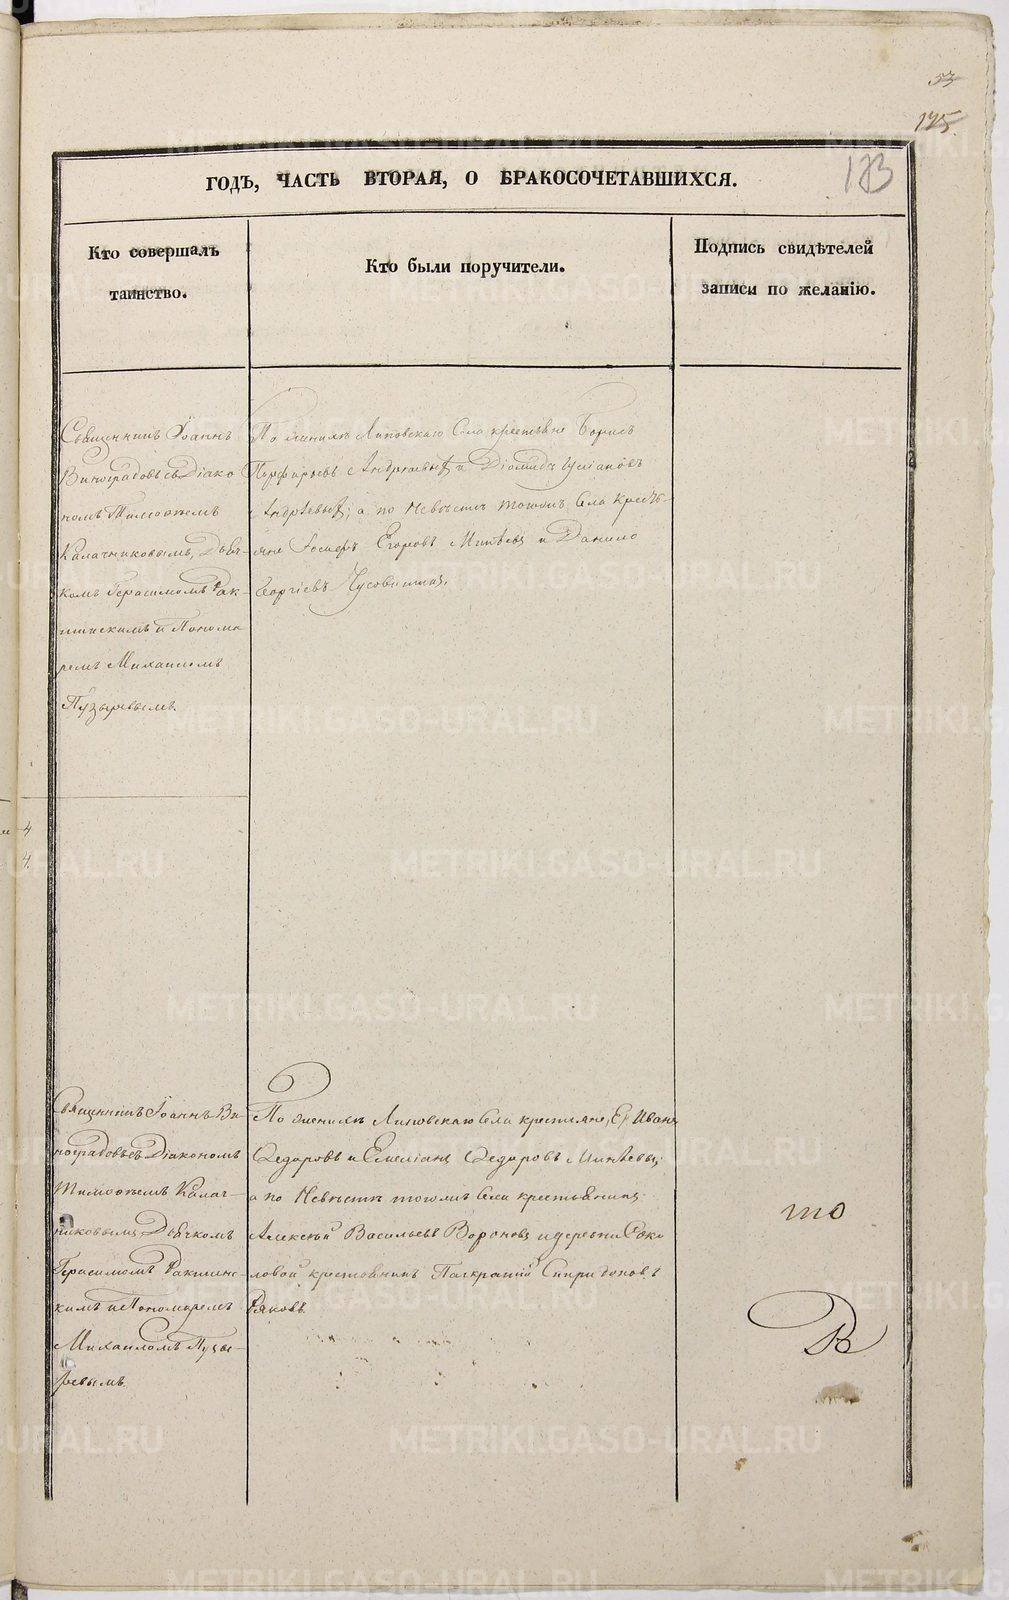 53
175.
173
ГОДЪ, ЧАСТЬ ВТОРАЯ, О БРАКОСОЧЕТАВШИХСЯ.
Кто совершалъ
таинство.
Кто были поручители.
Подпись свидѣтелей
записи по желанію.
Священникъ Іоаннъ
Виноградовъ съ Діако
номъ Тимоѳеемъ
Калачниковымъ, Дьяч-
комъ Герасимомъ Рак-
шинскимъ и Понома
ремъ Михаиломъ
Пузыревымъ.
По женихѣ Липовскаго Села крестьяне Борисъ
Порфирьевъ Андреевыхъ и Діомидъ
Андреевыхъ; а по Невѣстѣ тогожъ Села Кресть-
яне Іосифъ Егоровъ Минѣевъ и Данило
Георгіевъ Чусовитинъ.
4
4.
Священникъ Іоаннъ Ви
ноградовъ съ Діакономъ
Тимоѳеемъ Калач-
никовымъ Дьячкомъ
Герасимомъ Ракшинс-
кимъ и Пономаремъ
Михаиломъ Пузы-
ревымъ.
По женихѣ Липовскаго Села крестьяне, Иванъ
Ѳедоровъ и Емеліанъ Ѳедоровъ Минѣевы;
а по Невѣстѣ тогожъ Села крестьянинъ
Алексѣй Васильевъ Вороновъ и деревни Соко
ловой крестьянинъ Панкратій Спиридоновъ
Ряковъ.
то